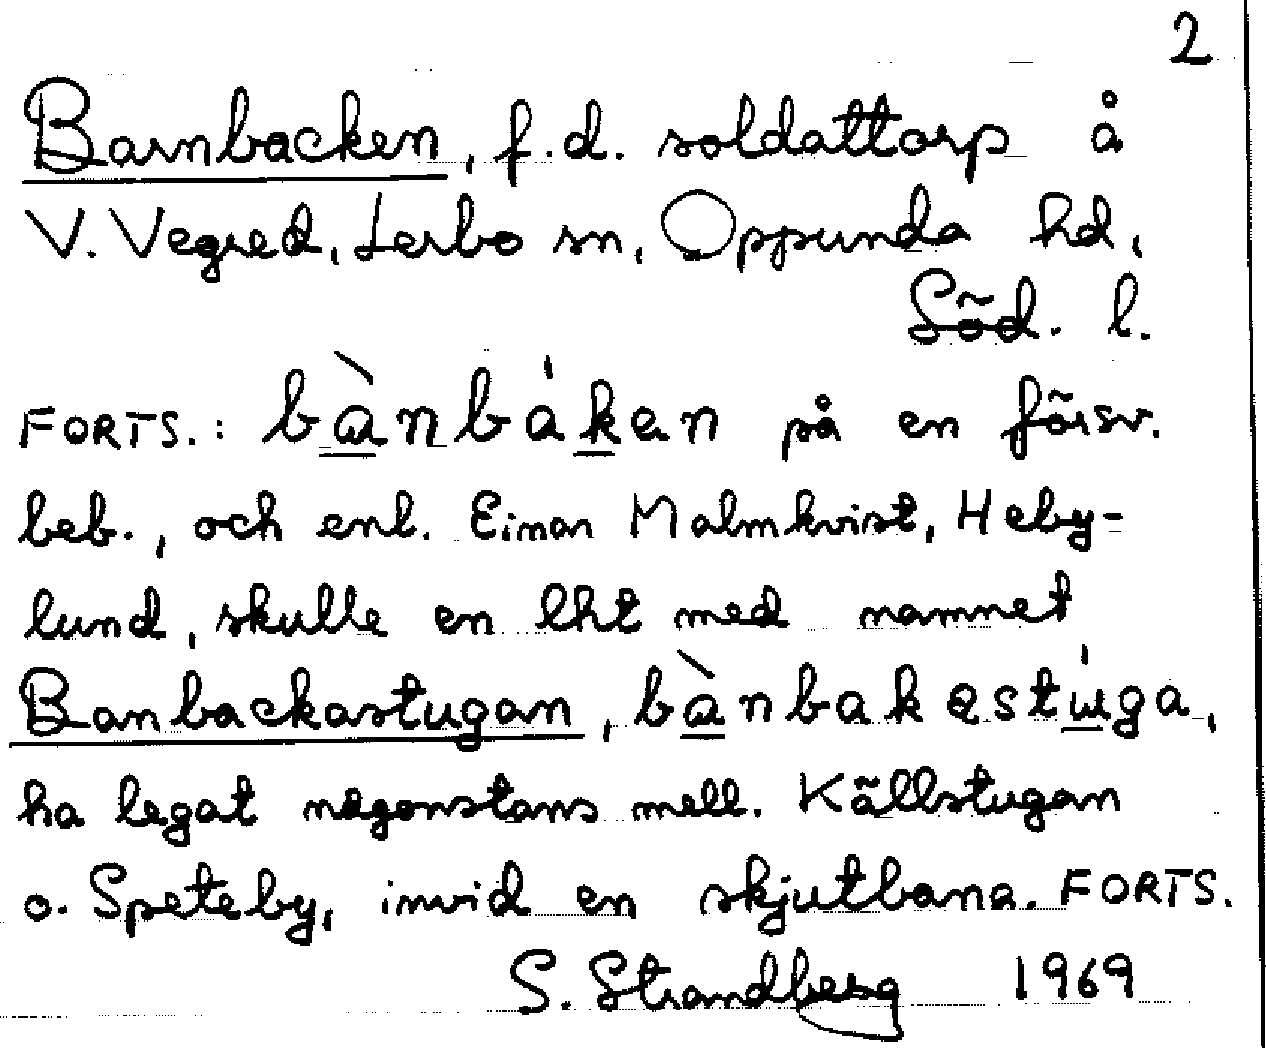 2
Barnbacken, f.d. soldattorp å
V. Vegred, Lerbo sn, Oppunda hd,
Söd. l.
FORTS.: bànbákan på en försv.
beb., och enl. Einar Malmkvist, Heby-
lund, skulle en lht med namnet
Banbackastugan, bànbakastúga,
ha legat någonstans mell. Källstugan
o. Speteby, invid en skjutbana. FORTS.
S. Strandberg 1969